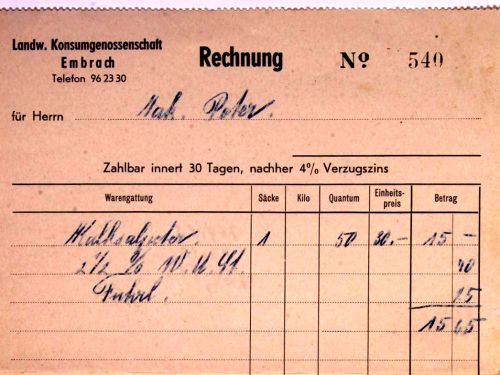 Landw. Konsumgenossenschaft
Embrach
Telefon 96 23 30
Rechnung Nº 540
für Herrn Peter.
Zahlbar innert 30 Tagen, nachher 4% Verzugszins
Warengattung Säcke Kilo Quantum Einheits-preis Betrag
Kalksalpeter. 1 50 30.- 15 -
2½ % 40
Fuhrl. 25
15 65